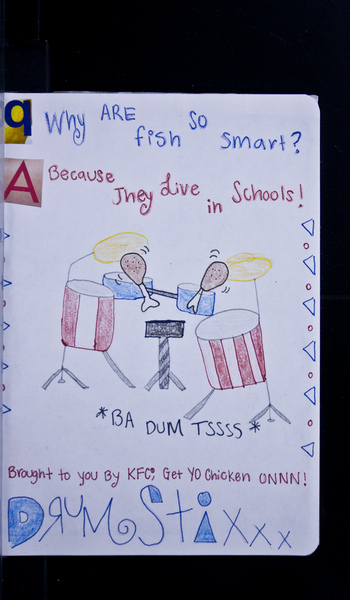 q Why ARE so
fish smart?
A Because They Live in Schools!
*BA DUM TSSSS*
Brought to you By KFC; Get YO Chicken ONNN!
DRUMStixxx